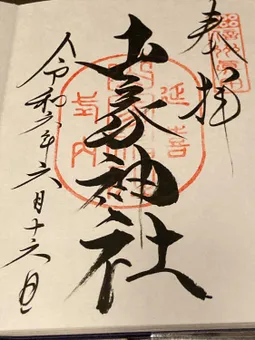 奉拝
延喜
山家神社
式内
令和六年六月十六日